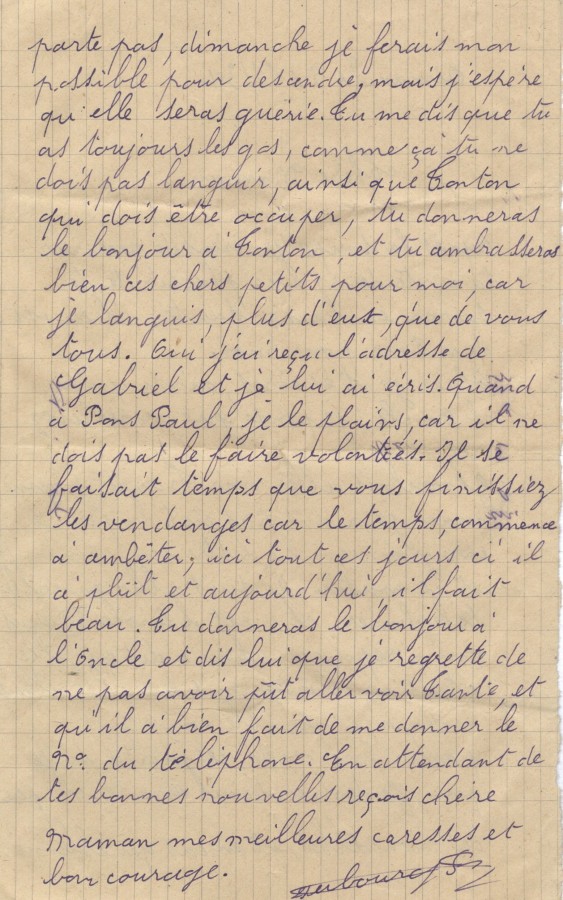 parte pas, dimanche jé ferais mon
possible pour descendre, mais j'espére
qu'elle seras guérie. Tu me dis que tu
as toujours les gas, comme ça tu ne
dois pas languir, ainsi que Tonton
qui dois être occuper, tu donneras
le bonjour à Tonton, et tu ambrasseras
bien ces chers petits pour moi, car
jé languis, plus d'eux, que de vous
tous. Oui j'ai reçu l'adresse de
Gabriel et jé lui ai écris. Quand
à Pons Paul, je le plains, car il ne
dois pas le faire volontiés. Il se
faisait temps que vous finissiez
les vendanges car le temps, commence
à ambêter; ici tout ces jours ci il
à plüt et aujourd'hui, il fait
beau. Tu donneras le bonjour à
l'Oncle et dis lui que je regrette de
ne pas avoir pût aller voir Tante, et
qu'il à bien fait de me donner le
No. du téléphone. En attendant de
tes bonnes nouvelles reçois chère
Maman mes meilleures caresses et
bon courage.